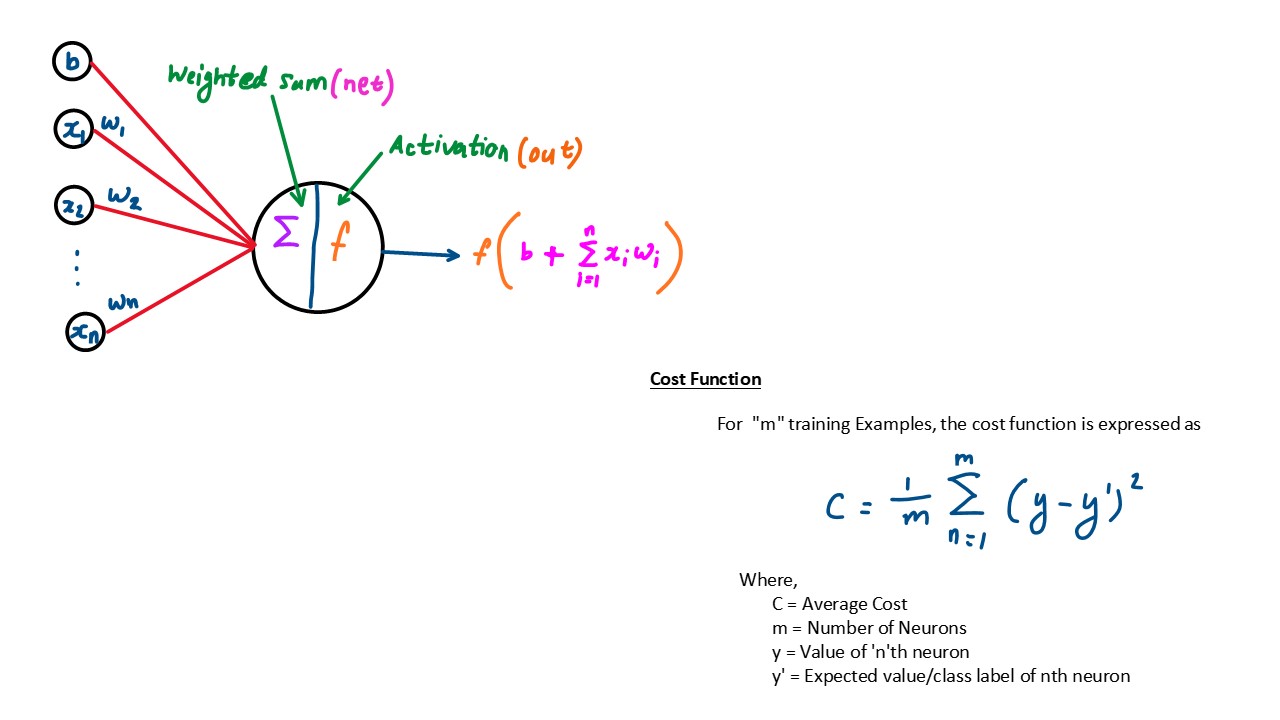 b
Weighted sum (net)
x₁ w₁
Activation (out)
x₂ w₂
Σ f
f(b + Σ xᵢwᵢ)
n
i=1
wn
xn
Cost Function
For "m" training Examples, the cost function is expressed as
C = 1/m Σ (y - y')²
m
n=1
Where,
C = Average Cost
m = Number of Neurons
y = Value of 'n'th neuron
y' = Expected value/class label of nth neuron